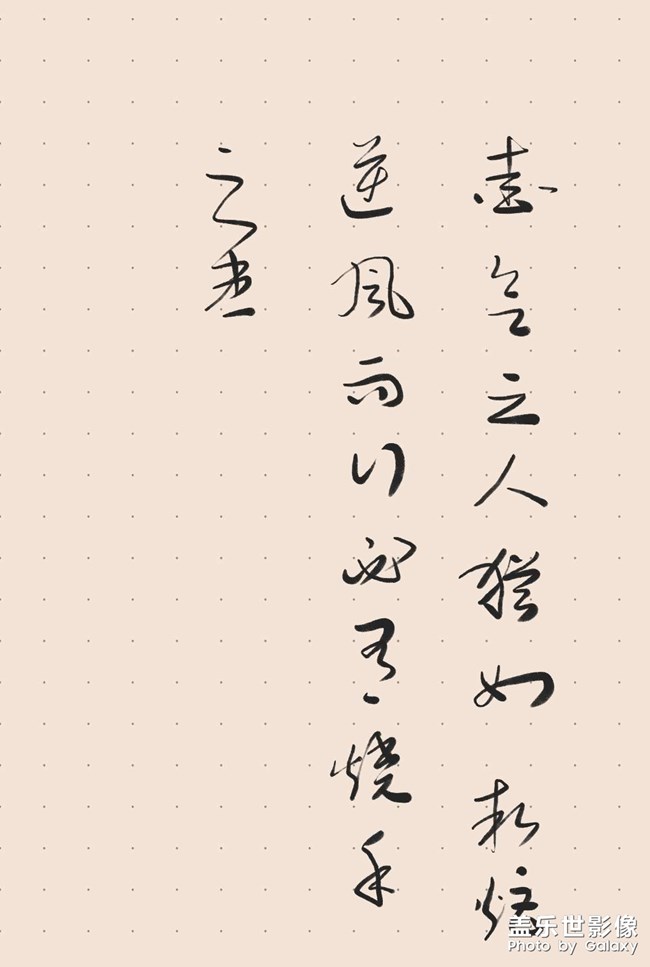 爱欲之人犹如执炬
逆风而行必有烧手
之患
盖乐世影像
Photo by Galaxy